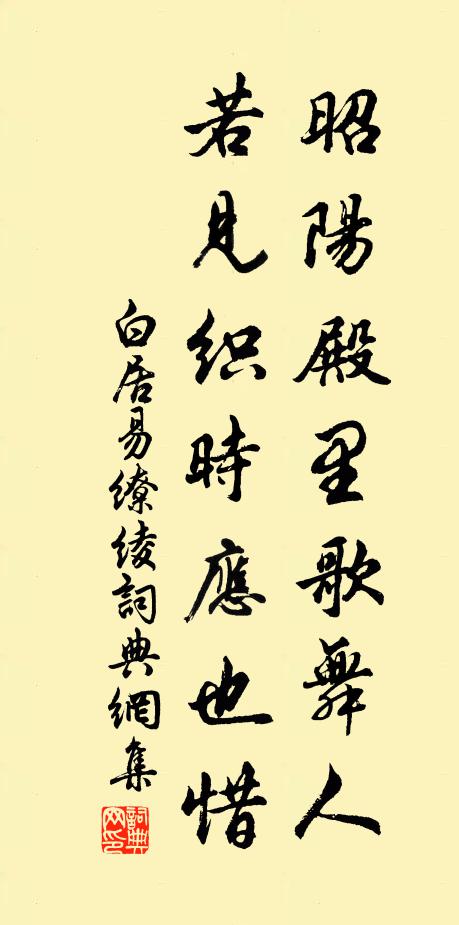 昭陽殿里歌舞人
若見織時應也惜
白居易繚綾詞典網集
詞典
网印